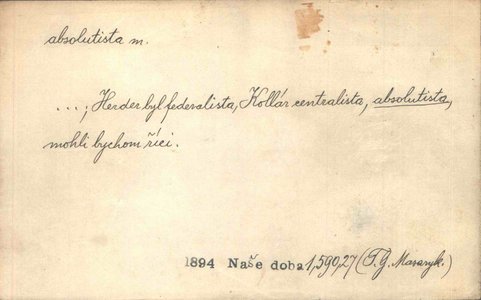 absolutista m.
...; Herder byl federalista, Kollár centralista, absolutista,
mohli bychom říci.
1894 Naše doba 1,590,27 (T. G. Masaryk.)